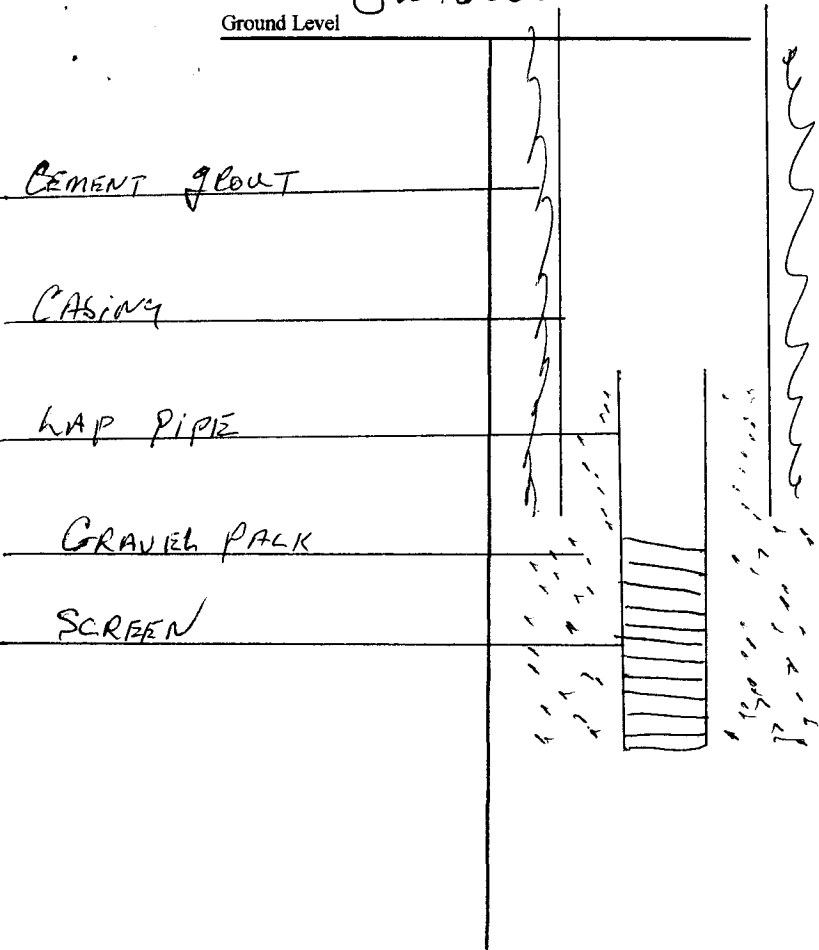 Ground Level
CEMENT GROUT
CASING
LAP PIPE
GRAVEL PACK
SCREEN